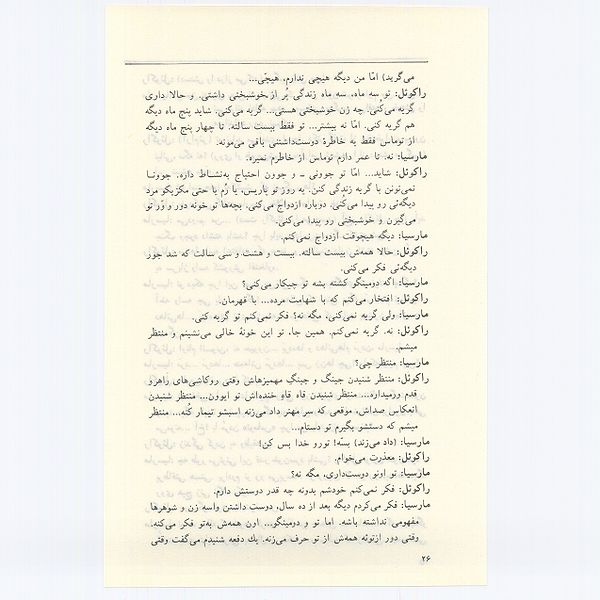 می‌گرید) امّا من دیگه هیچی ندارم، هیچّی...
راکوئل: تو سه ماه، سه ماه زندگی پُر از خوشبختی داشتی. و حالا داری
گریه می‌کنی. چه زن خوشبختی هستی... گریه می‌کنی. شاید پنج ماه دیگه
هم گریه کنی. امّا نه بیشتر... تو فقط بیست سالته. تا چهار پنج ماه دیگه
از توماس فقط یه خاطرهٔ دوست‌داشتنی باقی می‌مونه.
مارسیا: نه. تا عمر دارم توماس از خاطرم نمیره.
راکوئل: شاید... امّا تو جوونی ـ و جوون احتیاج به‌نشاط داره. جوونا
نمی‌تونن با گریه زندگی کنن. یه روز تو پاریس، یا رُم یا حتی مکزیکو مرد
دیگه‌ئی رو پیدا می‌کنی. دوباره ازدواج می‌کنی. بچه‌ها تو خونه دور و وَر تو
می‌گیرن و خوشبختی رو پیدا می‌کنی.
مارسیا: دیگه هیچوقت ازدواج نمی‌کنم.
راکوئل: حالا همه‌ش بیست سالته. بیست و هشت و سی سالت که شد جور
دیگه‌ئی فکر می‌کنی.
مارسیا: اگه دومینگو کشته بشه تو چیکار می‌کنی؟
راکوئل: افتخار می‌کنم که با شهامت مرده... با قهرمان.
مارسیا: ولی گریه نمی‌کنی، مگه نه؟ فکر نمی‌کنم تو گریه کنی.
راکوئل: نه. گریه نمی‌کنم. همین جا، تو این خونهٔ خالی می‌نشینم و منتظر
میشم.
مارسیا: منتظر چی؟
راکوئل: منتظر شنیدن جینگ و جینگِ مهمیزهاش وقتی روکاشی‌های راهرو
قدم ورمیداره... منتظر شنیدن قاه قاهِ خنده‌اش تو ایوون... منتظر شنیدن
انعکاس صداش، موقعی که سر مهتر داد می‌زنه اسبشو تیمار کُنه... منتظر
میشم که دستشو بگیرم تو دستام...
مارسیا: (داد می‌زند) بسّه! تورو خدا بس کن!
راکوئل: معذرت می‌خوام.
مارسیا: تو اونو دوست‌داری، مگه نه؟
راکوئل: فکر نمی‌کنم خودشم بدونه چه قدر دوستش دارم.
مارسیا: فکر می‌کردم دیگه بعد از ده سال، دوست داشتن واسه زن و شوهرها
مفهومی نداشته باشه. اما تو و دومینگو... اون همه‌ش به‌تو فکر می‌کنه.
وقتی دور ازتوئه همه‌ش از تو حرف می‌زنه. یك دفعه شنیدم می‌گفت وقتی
۲۶